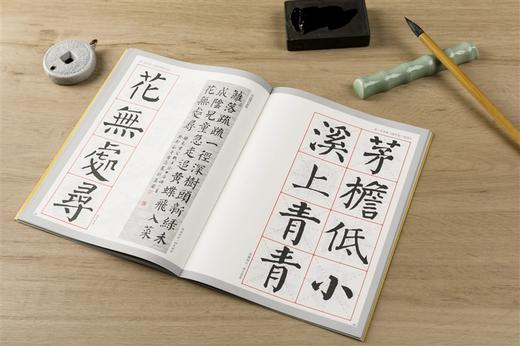 籬落疏疏一徑深樹頭新綠未
成陰兒童急走追黃蝶飛入菜
花無處尋
花無處尋
茅檐低小
溪上青青